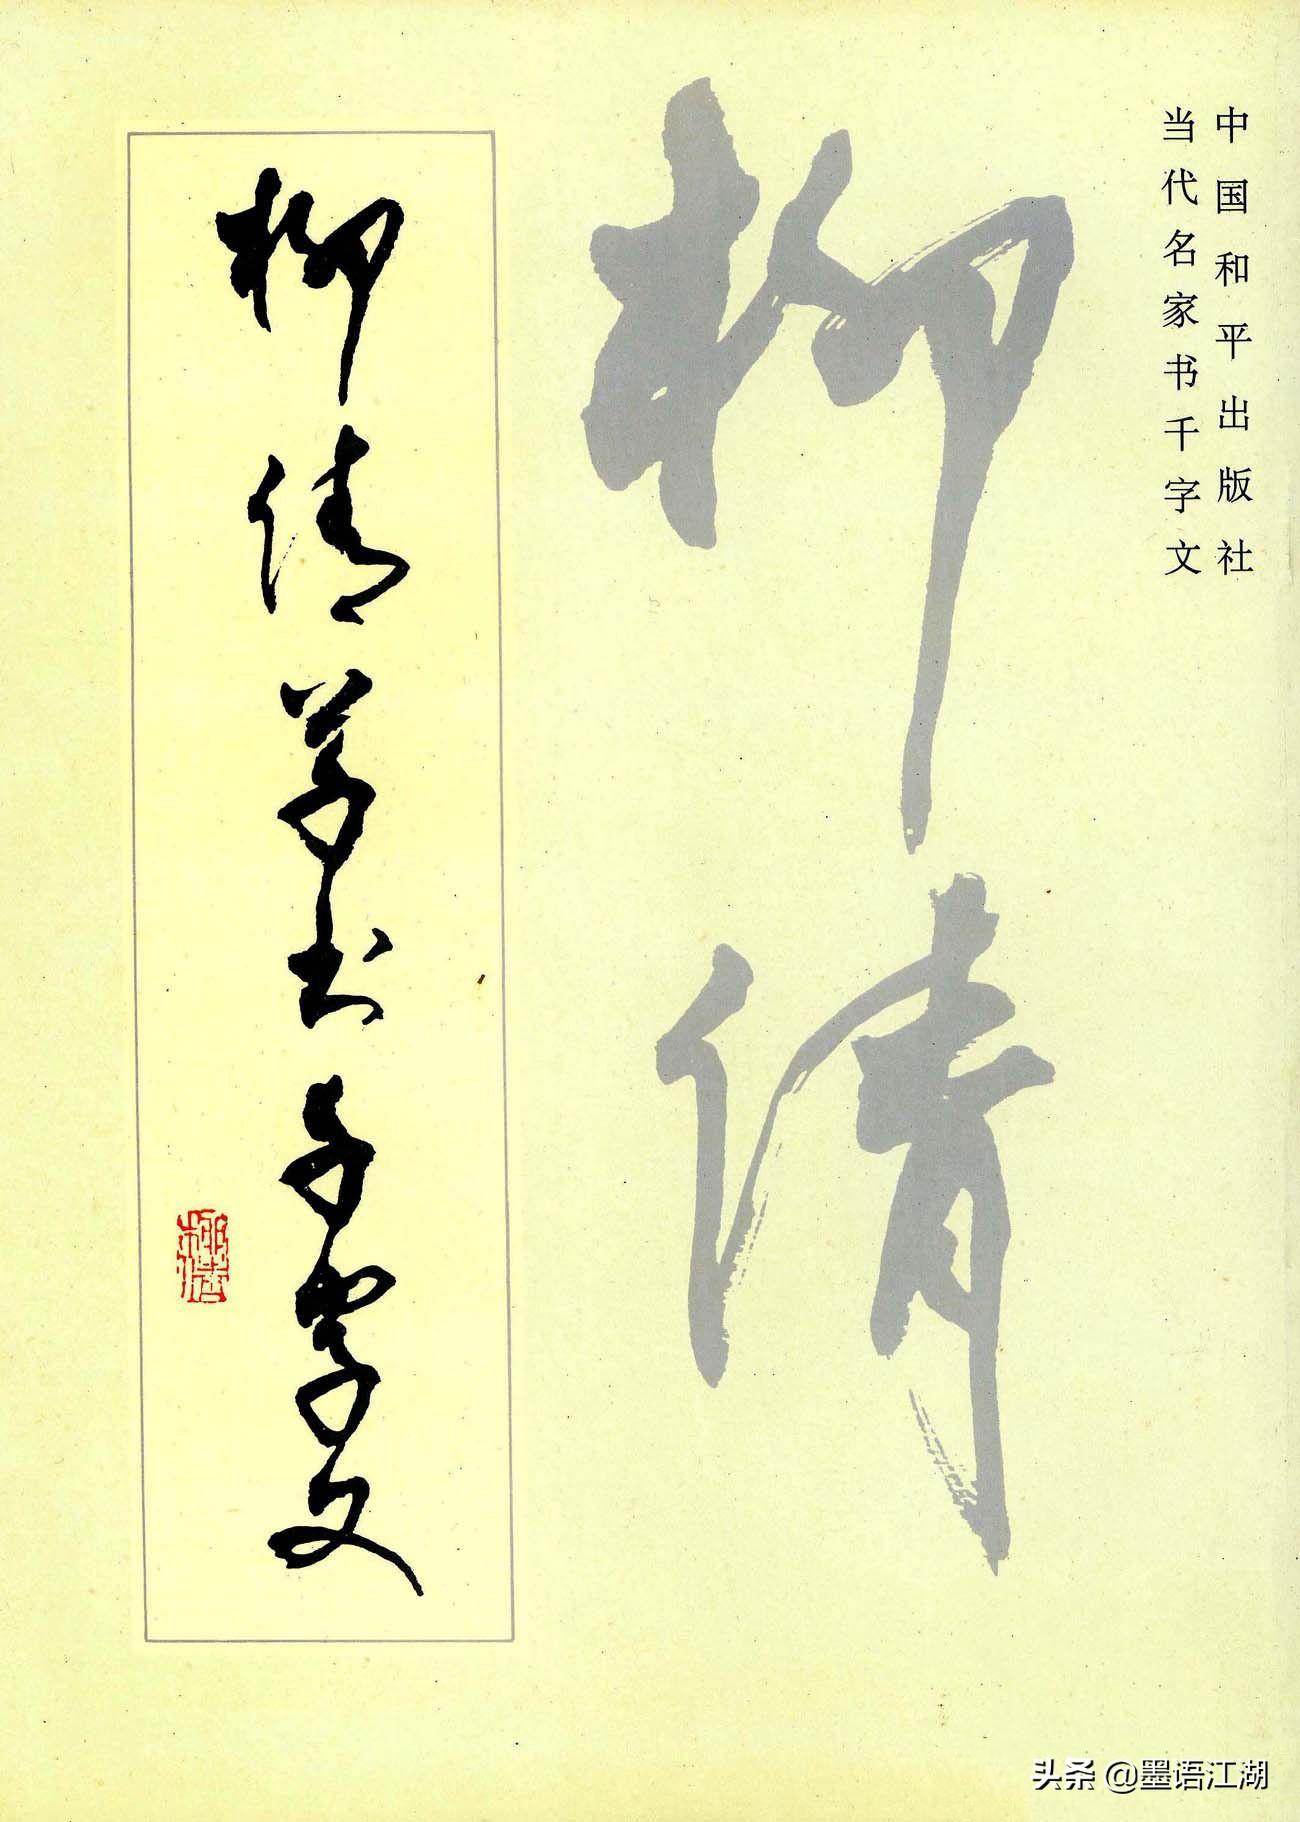 中国和平出版社
当代名家书千字文
柳倩
柳倩草书千字文
柳倩
头条 @墨语江湖